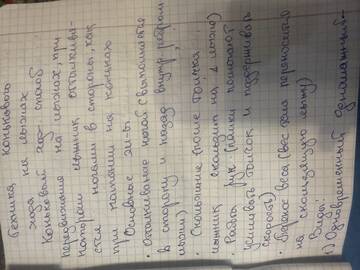 Техника конькового
хода на лыжах
Коньковый ход - способ
передвижения на лыжах, при
котором лыжник отталкива-
ется ногами в стороны, как
при катании на коньках
Основные эл-ты:
• Отталкивание ногой (выполняется
в сторону и назад внутр. ребром
лыжи)
• Скольжение (после толчка
лыжник скользит на 1 лыже)
Работа рук (палки помогают
усилить толчок и поддерживать
скорость)
• Перенос веса (вес тела переносится
на скользящую лыжу)
Виды:
1) Одновременный одношажный -